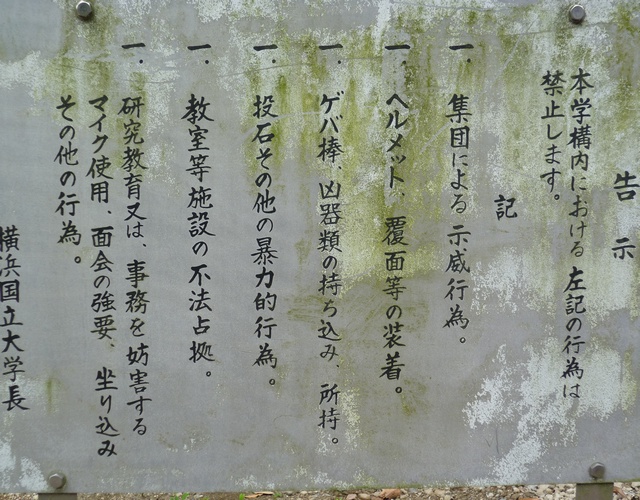 告示
本学構内における左記の行為は
禁止します。
記
一、集団による示威行為。
一、ヘルメット、覆面等の装着。
一、ゲバ棒、凶器類の持ち込み、所持。
一、投石その他の暴力的行為。
一、教室等施設の不法占拠。
一、研究教育又は、事務を妨害する
マイク使用、面会の強要、坐り込み
その他の行為。
横浜国立大学長